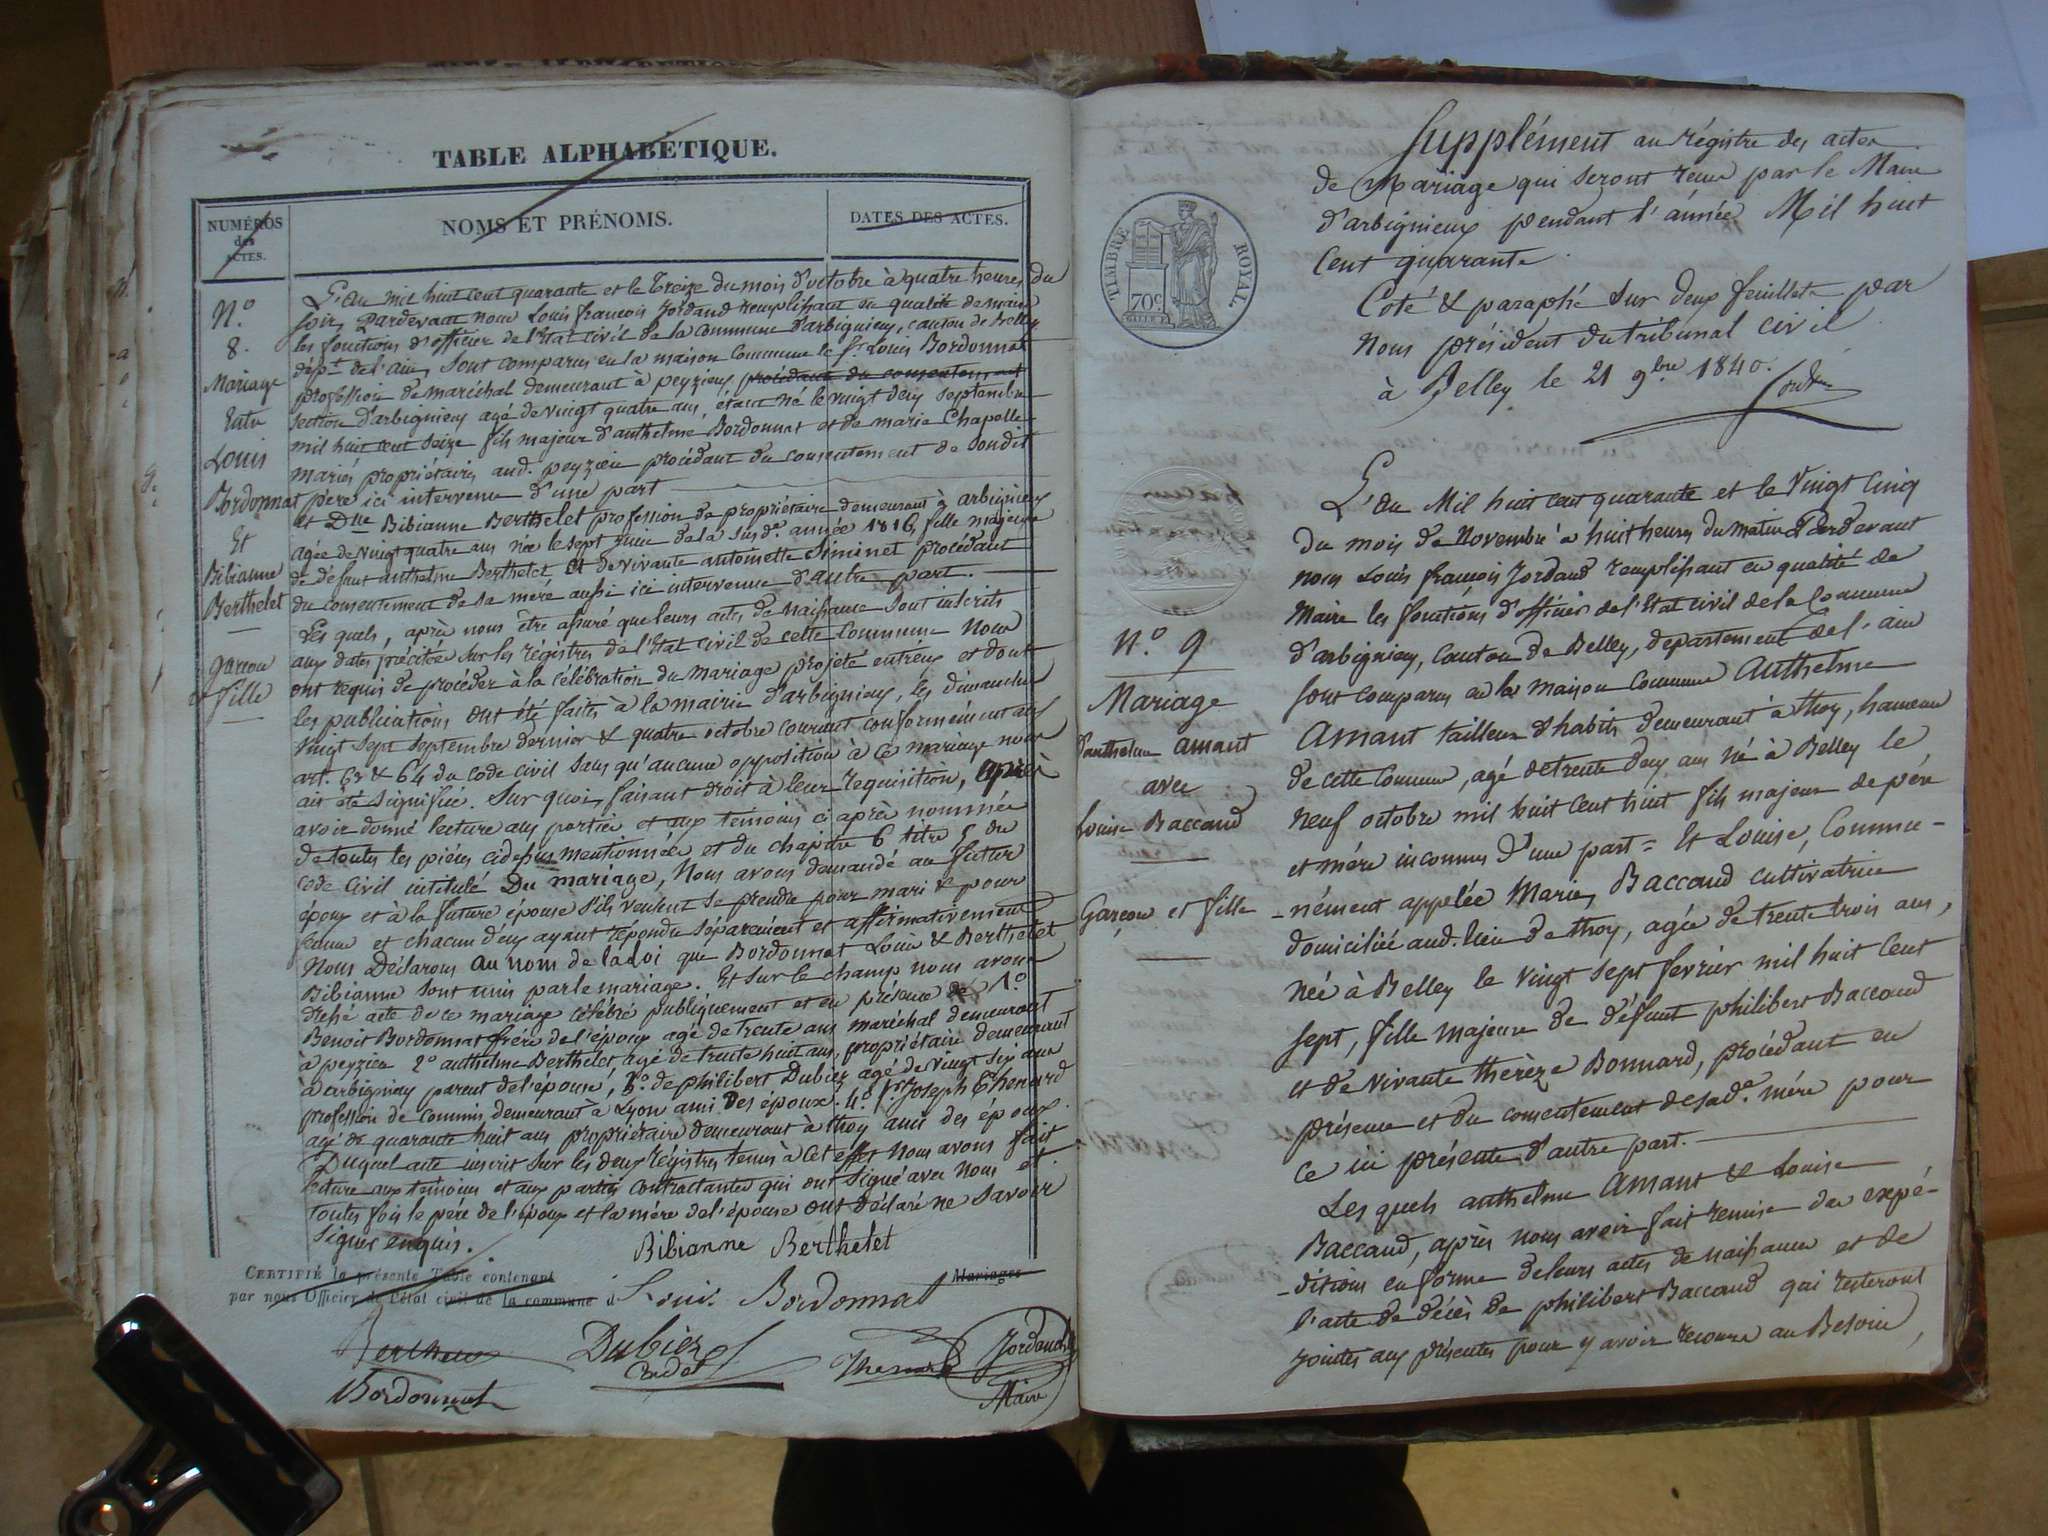 TABLE ALPHABÉTIQUE.
NUMÉROS des ACTES.
NOMS ET PRÉNOMS.
DATES DES ACTES.
N.º
8.
Mariage
Entre
Louis
Bordonnat
Et
Bibianne
Berthelet
garcon
et fille
L'au mil huit cent quarante et le treize du mois d'octobre à quatre heures du
soir, Pardevant nous Louis francois Jordand remplissant en qualité de maire
les fonctions d'officier de l'Etat civil de la Commune d'arbignieu, canton de Belley
dép.t de l'ain, Sont comparus en la maison Commune le s.r Louis Bordonnat
profession de maréchal demeurant à peyzieu procédant du consentement
section d'arbignieu agé de vingt quatre ans, étant né le vingt deux septembre
mil huit cent seize fils majeur d'anthelme Bordonnat et de marie Chapelle
mariés propriétaires aud. peyzieu procédant du consentement de sondit
père ici intervenu d'une part
et Dlle Bibianne Berthelet profession de propriétaire demeurant à arbignieu
agée de vingt quatre ans née le sept juin de la susd.e année 1816 fille majeure
de défunt anthelme Berthelet et de vivante antoinette Siminet procédant
du consentement de sa mère aussi ici intervenue d'autre part.
Les quels, après nous être assuré que leurs actes de naissance sont inscrits
aux dates précitées sur les régistres de l'Etat civil de cette Commune Nous
ont requis de procéder à la célébration du mariage projeté entreux et dont
les publications ont été faites à la mairie d'arbignieu, les dimanches
vingt sept septembre dernier & quatre octobre courant conformément aux
art. 63 & 64 du code civil sans qu'aucune opposition à ce mariage nous
ait été signifiée. Sur quoi, faisant droit à leur requisition, après
avoir donné lecture aux parties et aux temoins ci après nommés
de toutes les pièces cidessus mentionnées et du chapitre 6 titre 5 du
code civil intitulé Du mariage, Nous avons demandé au futur
époux et à la future épouse s'ils veulent se prendre pour mari & pour
femme et chacun d'eux ayant répondu séparément et affirmativement
Nous Déclarons au nom de la loi que Bordonnat Louis & Berthelet
Bibianne sont unis par le mariage. Et sur le champ nous avons
dressé acte de ce mariage célébré publiquement et en présence de 1.º
Benoit Bordonnat frère de l'époux agé de trente ans maréchal demeurant
à peyzieu 2º anthelme Berthelet, agé de trente huit ans, propriétaire demeurant
à arbignieu parent de l'épouse, 3.º de philibert Dubiez agé de vingt six ans
profession de commis, demeurant à Lyon ami des époux. 4.º s.r Joseph Thenard
agé de quarante huit ans propriétaire demeurant à thoy ami des époux.
Duquel acte inscrit sur les deux régistres tenus à cet effet Nous avons fait
lecture aux témoins et aux parties contractantes qui ont signé avec nous et
toutes fois le père de l'époux et la mère de l'épouse ont déclaré ne savoir
signer enquis.
Bibianne Berthelet
CERTIFIÉ la présente Table contenant Mariages
par nous Officier de l'état civil de la commune d
Louis Bordonnat
Dubiez
Cadet
Thenard
Jordand
Maire
Bordonnat
Supplément au régistre des actes
de Mariage qui seront reçus par le Maire
d'arbignieux pendant l'année Mil huit
Cent quarante.
Coté & paraphé sur deux feuillets par
Nous président du tribunal civil
à Belley le 21 9bre 1840.
TIMBRE ROYAL.
70c.
N.º 9
Mariage
d'anthelme Amant
avec
Louise Baccand
Garçon et fille
L'au Mil huit cent quarante et le Vingt Cinq
du mois de Novembre à huit heures du matin Pardevant
nous Louis françois Jordand remplissant en qualité de
Maire les fonctions d'officier de l'Etat civil de la Commune
d'arbignieu, canton de Belley, département de l'ain
sont comparus en la maison Commune Anthelme
Amant tailleur d'habits demeurant à thoy, hameau
de cette Commune, agé de trente deux ans né à Belley le
Neuf octobre mil huit Cent huit fils majeur de père
et mère inconnus d'une part = Et Louise, Commu-
-nément appelée Marie, Baccand cultivatrice
domiciliée aud. lieu de thoy, agée de trente trois ans,
née à Belley le vingt sept fevrier mil huit Cent
sept, fille majeure de défunt philibert Baccand
et de vivante thérèze Bonnard, procédant en
présence et du consentement de sad.e mère pour
ce ici présente d'autre part.
Les quels anthelme Amant & Louise
Baccand, après nous avoir fait remise des expé-
-ditions en forme de leurs actes de naissance et de
l'acte de décès de philibert Baccand qui resteront
jointes aux présentes pour y avoir recours au Besoin,